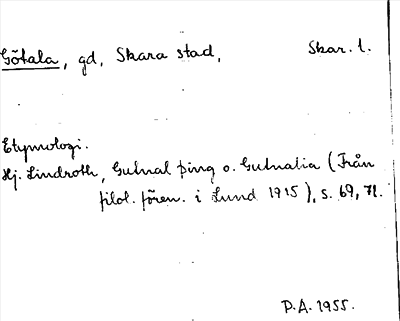 Götala, gd, Skara stad, Skar. l.
Etymologi.
Hj. Lindroth, Gutnal þing o. Gutnalia (Från
filol. fören. i Lund 1915), s. 69, 71.
P.A. 1955.